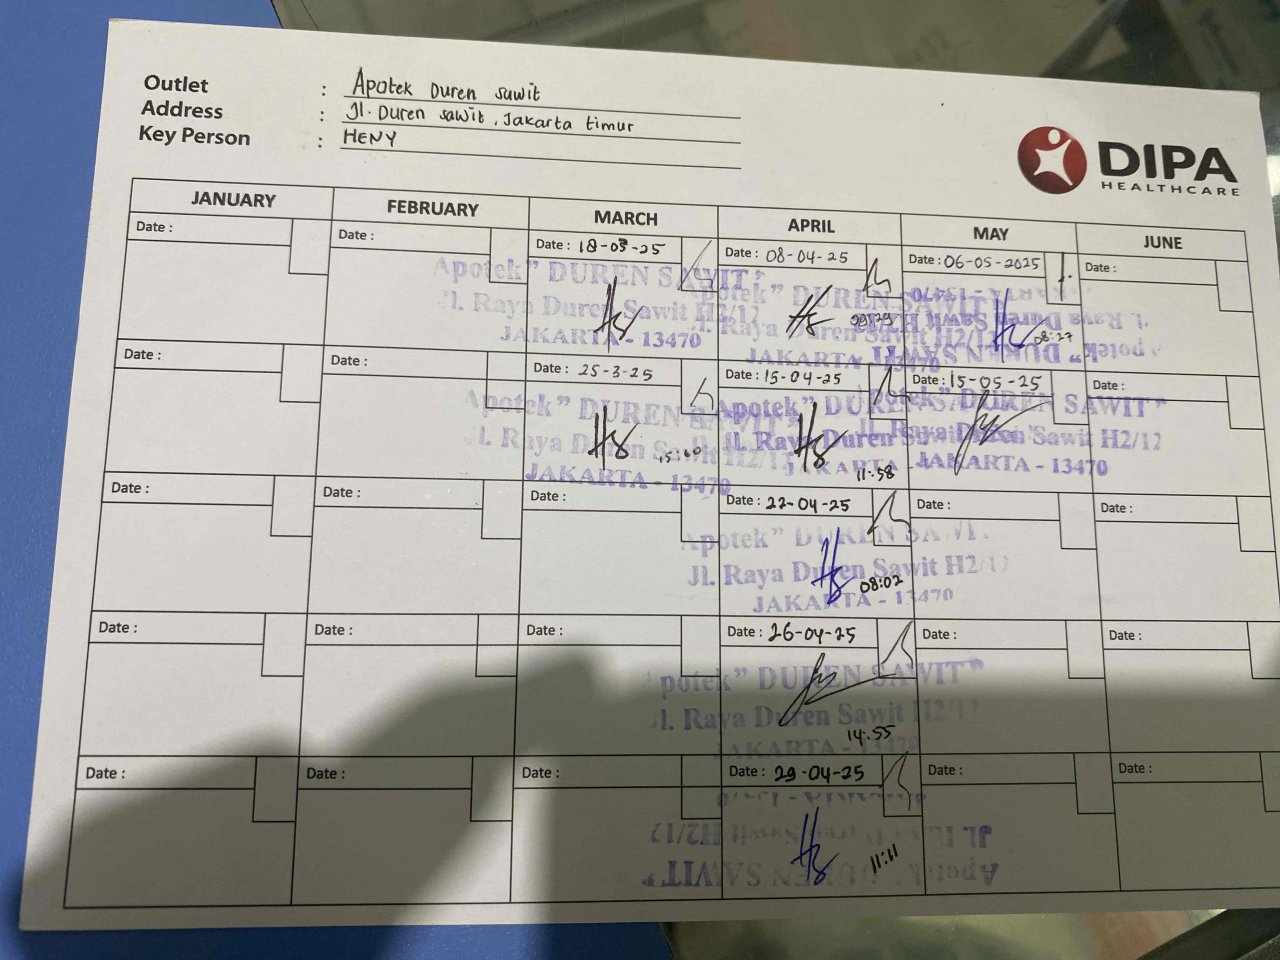 Outlet : Apotek Duren sawit
Address : Jl. Duren sawit, Jakarta timur
Key Person : HENY
DIPA
HEALTHCARE
JANUARY FEBRUARY MARCH APRIL MAY JUNE
Date : Date : Date : 18-03-25 Date : 08-04-25 Date : 06-05-2025 Date :
Apotek" DUREN SAWIT"
Jl. Raya Duren Sawit H2/12
JAKARTA - 13470
Apotek" DUREN SAWIT"
Jl. Raya Duren Sawit H2/12
JAKARTA - 13470
Apotek" DUREN SAWIT"
Jl. Raya Duren Sawit H2/12
JAKARTA - 13470
08:27
Date : Date : Date : 25-3-25 Date : 15-04-25 Date : 15-05-25 Date :
Apotek" DUREN SAWIT"
Jl. Raya Duren Sawit H2/12
JAKARTA - 13470
Apotek" DUREN SAWIT"
Jl. Raya Duren Sawit
JAKARTA -
11:58
Apotek" DUREN SAWIT"
Jl. Raya Duren Sawit H2/12
JAKARTA - 13470
Date : Date : Date : Date : 22-04-25 Date : Date :
Apotek" DUREN SAWIT
Jl. Raya Duren Sawit H2/12
JAKARTA - 13470
08:02
Date : Date : Date : Date : 26-04-25 Date : Date :
Apotek" DUREN SAWIT"
Jl. Raya Duren Sawit H2/12
JAKARTA - 13470
14:55
Date : Date : Date : Date : 29-04-25 Date : Date :
Apotek" DUREN SAWIT"
Jl. Raya Duren Sawit H2/12
11:11